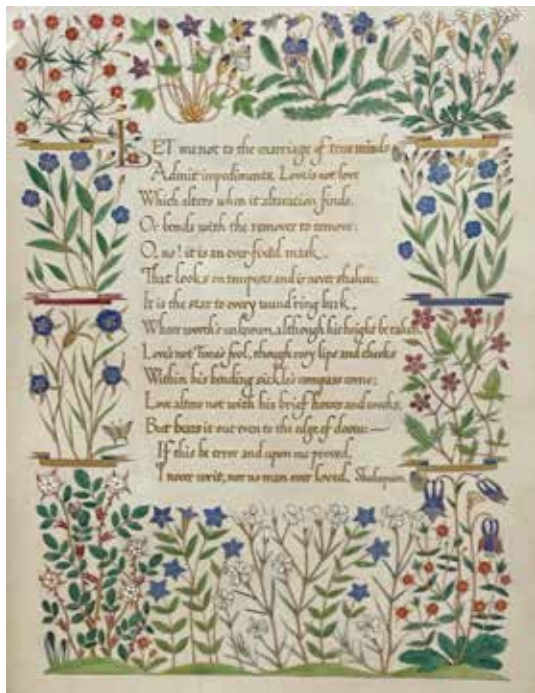 LET me not to the marriage of true minds
Admit impediments. Love is not love
Which alters when it alteration finds,
Or bends with the remover to remove:
O, no! it is an ever-fixèd mark,
That looks on tempests and is never shaken;
It is the star to every wand'ring bark,
Whose worth's unknown, although his height be taken.
Love's not Time's fool, though rosy lips and cheeks
Within his bending sickle's compass come;
Love alters not with his brief hours and weeks,
But bears it out even to the edge of doom:—
If this be error and upon me proved,
I never writ, nor no man ever loved. Shakespeare.